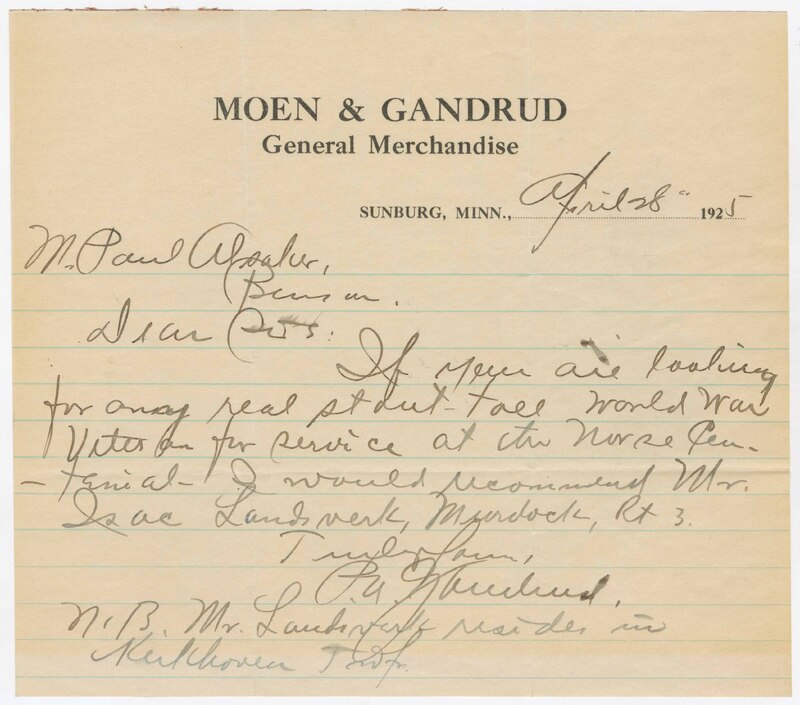 MOEN & GANDRUD
General Merchandise
SUNBURG, MINN., April 28" 1925
M. Paul Alsaker,
Benson.
Dear Sir:
If you are looking
for any real stout - tall World War
Veteran for service at the Norse Cen-
- tenial - I would recommend Mr.
Isac Landsverk, Murdock, Rt 3.
Truly Yours,
P.A. Gandrud.
N.B. Mr. Landsverk resides in
Kerkhoven Twp.